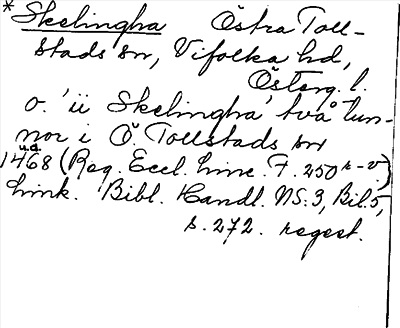 * Skelingha Östra Toll-
stads sn, Vifolka hd,
Österg. l.
o. 'ij Skelingha' två tun-
nor i Ö. Tollstads sn
u.d.
1468 (Reg. Eccl. Linc. F. 250 r-v)
Link. Bibl. Handl. NS:3, Bil.5,
s. 272. regest.